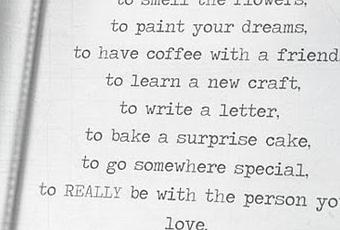 to smell the flowers,
to paint your dreams,
to have coffee with a friend
to learn a new craft,
to write a letter,
to bake a surprise cake,
to go somewhere special,
to REALLY be with the person yo
love.